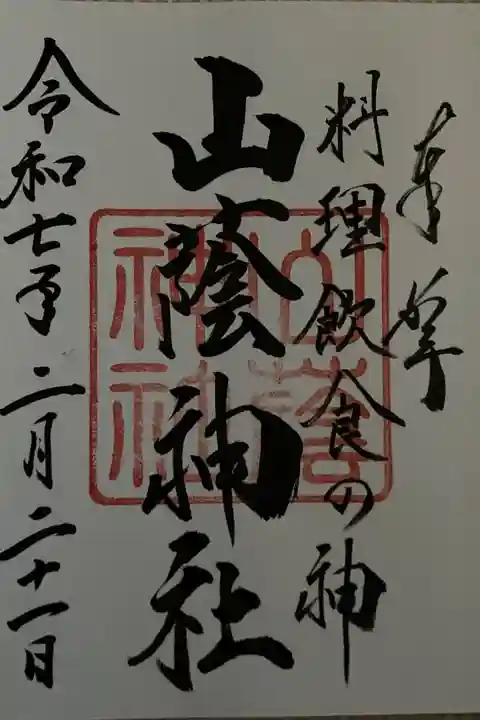 奉拝
料理飲食の神
山蔭神社
令和七年二月二十一日
山蔭神社